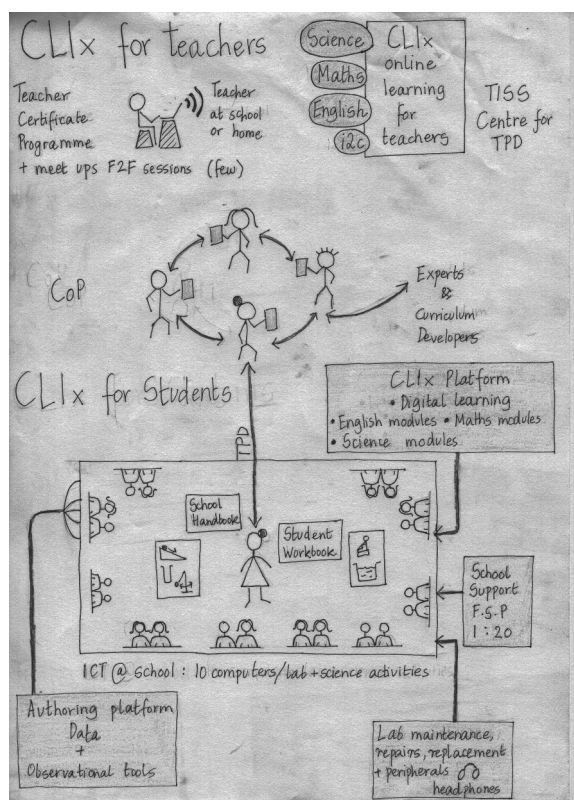 CLIx for teachers
Science
Maths
English
i2c
CLIx
online
learning
for
teachers
TISS
Centre for
TPD
Teacher
Certificate
Programme
+ meet ups F2F sessions (few)
Teacher
at school
or home
CoP
Experts
&
Curriculum
Developers
CLIx for Students
TPD
CLIx Platform
• Digital learning
• English modules • Maths modules
• Science modules
School
Handbook
Student
Workbook
School
Support
F.S.P
1 : 20
ICT @ School : 10 computers/lab + science activities
Authoring platform
Data
+
Observational tools
Lab maintenance,
repairs, replacement
+ peripherals
headphones